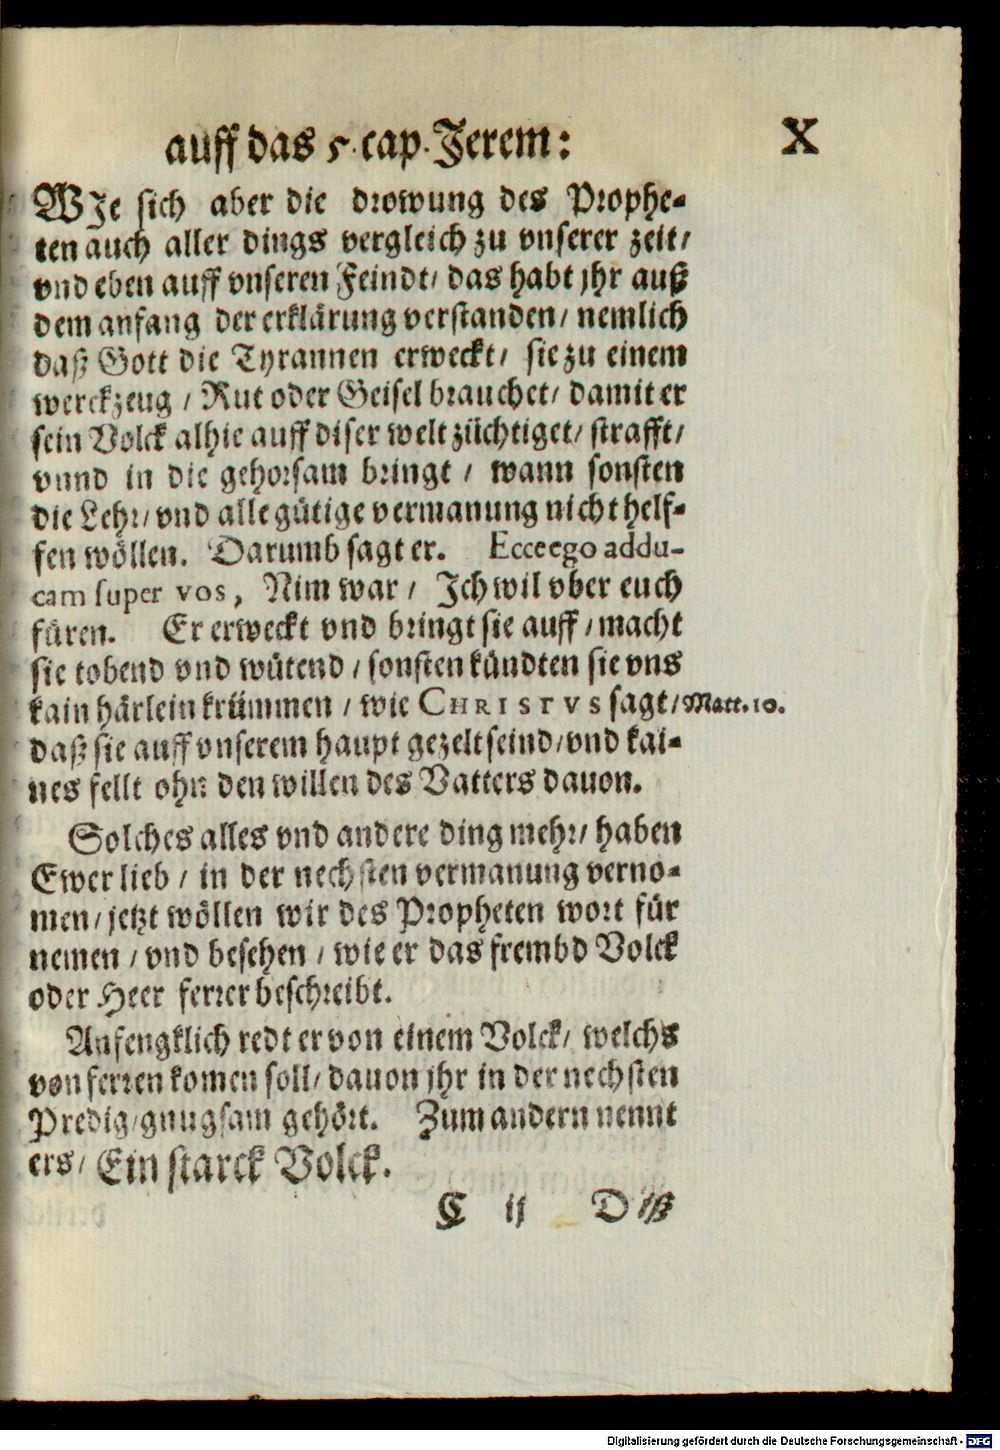 auff das 5. cap. Jerem: X
WJe sich aber die drowung des Prophe-
ten auch aller dings vergleich zu vnserer zeit/
vnd eben auff vnseren Feindt/ das habt jhr auß
dem anfang der erklärung verstanden/ nemlich
daß Gott die Tyrannen erweckt/ sie zu einem
werckzeug / Rut oder Geisel brauchet/ damit er
sein Volck alhie auff diser welt züchtiget/ strafft/
vnnd in die gehorsam bringt / wann sonsten
die Lehr/ vnd alle gütige vermanung nicht helf-
fen wöllen. Darumb sagt er. Ecce ego addu-
cam super vos, Nim war / Jch wil vber euch
füren. Er erweckt vnd bringt sie auff / macht
sie tobend vnd wütend / sonsten kündten sie vns
kain härlein krümmen / wie CHRISTVS sagt/ Matt. 10.
daß sie auff vnserem haupt gezelt seind/ vnd kai-
nes fellt ohn den willen des Vatters dauon.
Solches alles vnd andere ding mehr/ haben
Ewer lieb / in der nechsten vermanung verno-
men/ jetzt wöllen wir des Propheten wort für
nemen / vnd besehen / wie er das frembd Volck
oder Heer ferrer beschreibt.
Anfengklich redt er von einem Volck/ welchs
von ferren komen soll/ dauon jhr in der nechsten
Predig/ gnugsam gehört. Zum andern nennt
ers/ Ein starck Volck.
C ij Diß
Digitalisierung gefördert durch die Deutsche Forschungsgemeinschaft - DFG